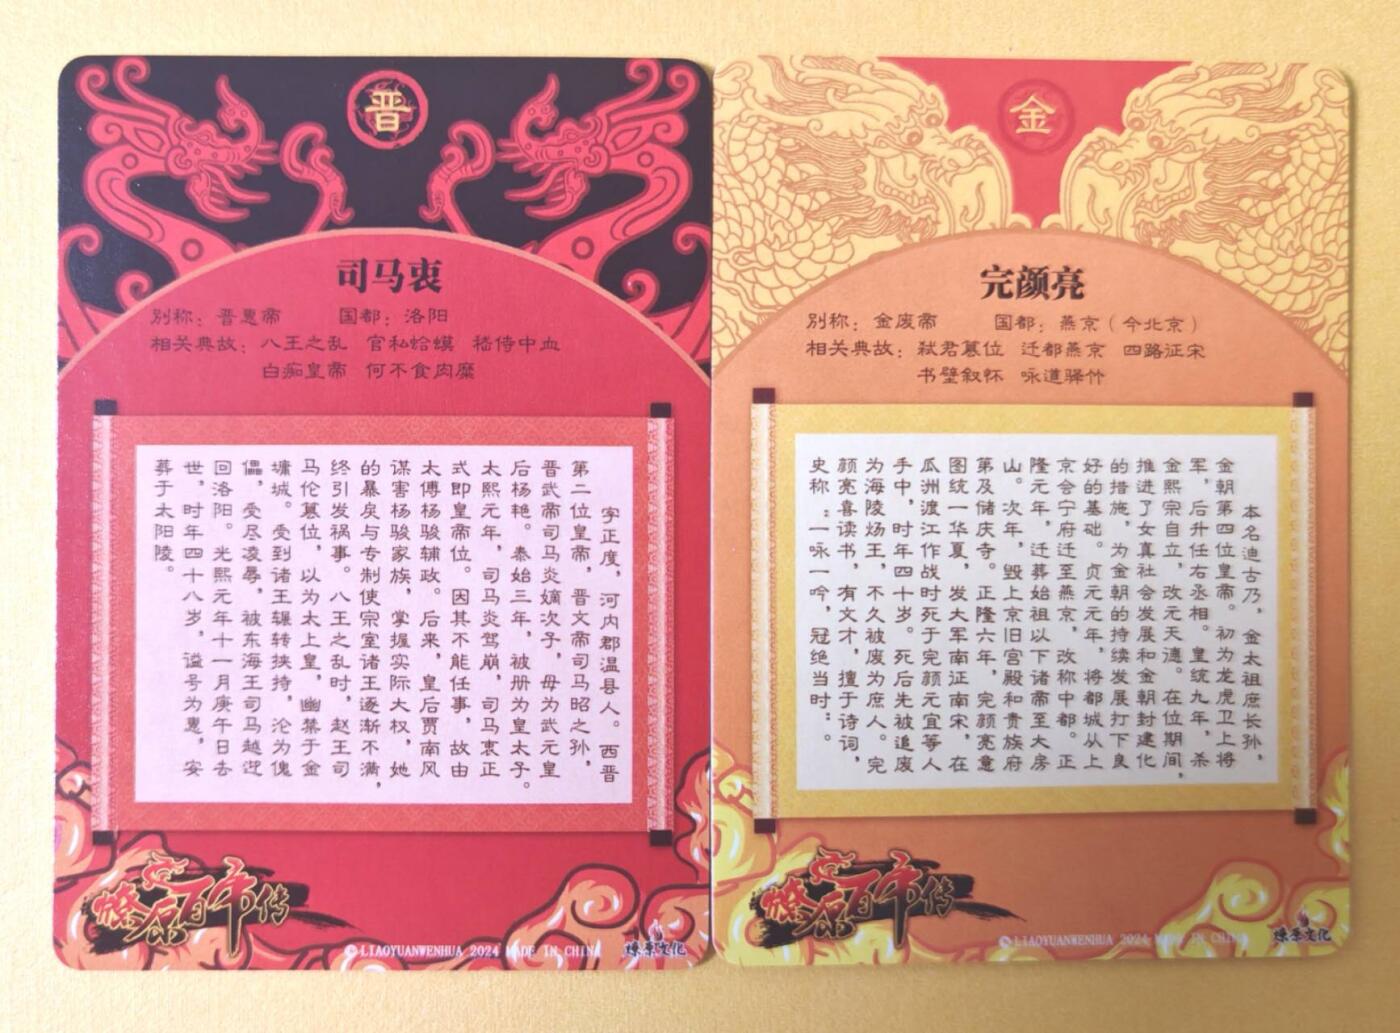 晋
司马衷
别称：晋惠帝 国都：洛阳
相关典故：八王之乱 官私蛤蟆 嵇侍中血
白痴皇帝 何不食肉糜
字正度，河内郡温县人。西晋
第二位皇帝，晋文帝司马昭之孙，
晋武帝司马炎嫡次子，母为武元皇
后杨艳。泰始三年，被册为皇太子。
太熙元年，司马炎驾崩，司马衷正
式即皇帝位。因其不能任事，故由
太傅杨骏辅政。后来，皇后贾南风
谋害杨骏家族，掌握实际大权，她
的暴戾与专制使宗室诸王逐渐不满，
终引发祸事。八王之乱时，赵王司
马伦篡位，以为太上皇，幽禁于金
墉城。受到诸王辗转挟持，沦为傀
儡，受尽凌辱，被东海王司马越迎
回洛阳。光熙元年十一月庚午日去
世，时年四十八岁，谥号为惠，安
葬于太阳陵。
燎原百帝传
©LIAOYUANWENHUA 2024 MADE IN CHINA
燎原文化
金
完颜亮
别称：金废帝 国都：燕京（今北京）
相关典故：弑君篡位 迁都燕京 四路征宋
书壁叙怀 咏道驿竹
本名迪古乃，金太祖庶长孙，
金朝第四位皇帝。初为龙虎卫上将
军，后升任右丞相。皇统九年，杀
金熙宗自立，改元天德。在位期间，
推进了女真社会发展和金朝封建化
的措施，为金朝的持续发展打下良
好的基础。贞元元年，将都城从上
京会宁府迁至燕京，改称中都。正
隆元年，迁葬始祖以下诸帝至大房
山。次年，毁上京旧宫殿和贵族府
第及储庆寺。正隆六年，完颜亮意
图统一华夏，发大军南征南宋，在
瓜洲渡江作战时死于完颜元宜等人
手中，时年四十岁。死后先被追废
为海陵炀王，不久被废为庶人。完
颜亮喜读书，有文才，擅于诗词，
史称：一咏一吟，冠绝当时：。
燎原百帝传
©LIAOYUANWENHUA 2024 MADE IN CHINA
燎原文化